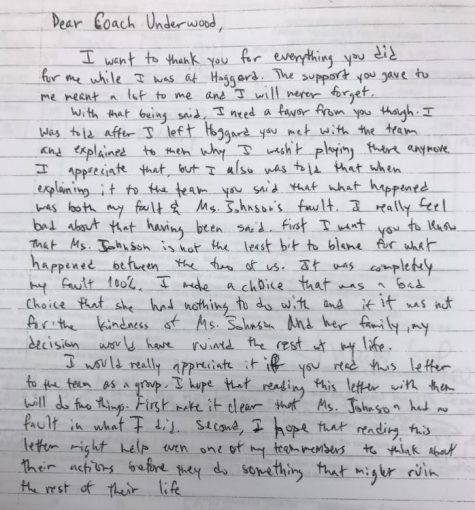 Dear Coach Underwood,
I want to thank you for everything you did
for me while I was at Hoggard. The support you gave to
me meant a lot to me and I will never forget.
With that being said, I need a favor from you though. I
was told after I left Hoggard you met with the team
and explained to them why I wasn't playing there anymore
I appreciate that, but I also was told that when
explaining it to the team you said that what happened
was both my fault & Ms. Johnson's fault. I really feel
bad about that having been said. First I want you to know
that Ms. Johnson is not the least bit to blame for what
happened between the two of us. It was completely
my fault 100%. I made a choice that was a bad
choice that she had nothing to do with and if it was not
for the kindness of Ms. Johnson and her family, my
decision would have ruined the rest of my life.
I would really appreciate it if you read this letter
to the team as a group. I hope that reading this letter with them
will do two things. First make it clear that Ms. Johnson had no
fault in what I did. Second, I hope that reading this
letter might help even one of my teammembers to think about
their actions before they do something that might ruin
the rest of their life